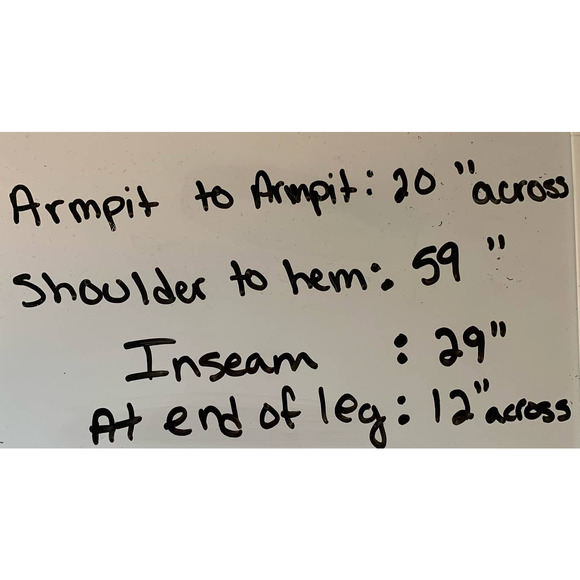 Armpit to Armpit: 20 "across
Shoulder to hem: 59 "
Inseam : 29"
At end of leg: 12"across